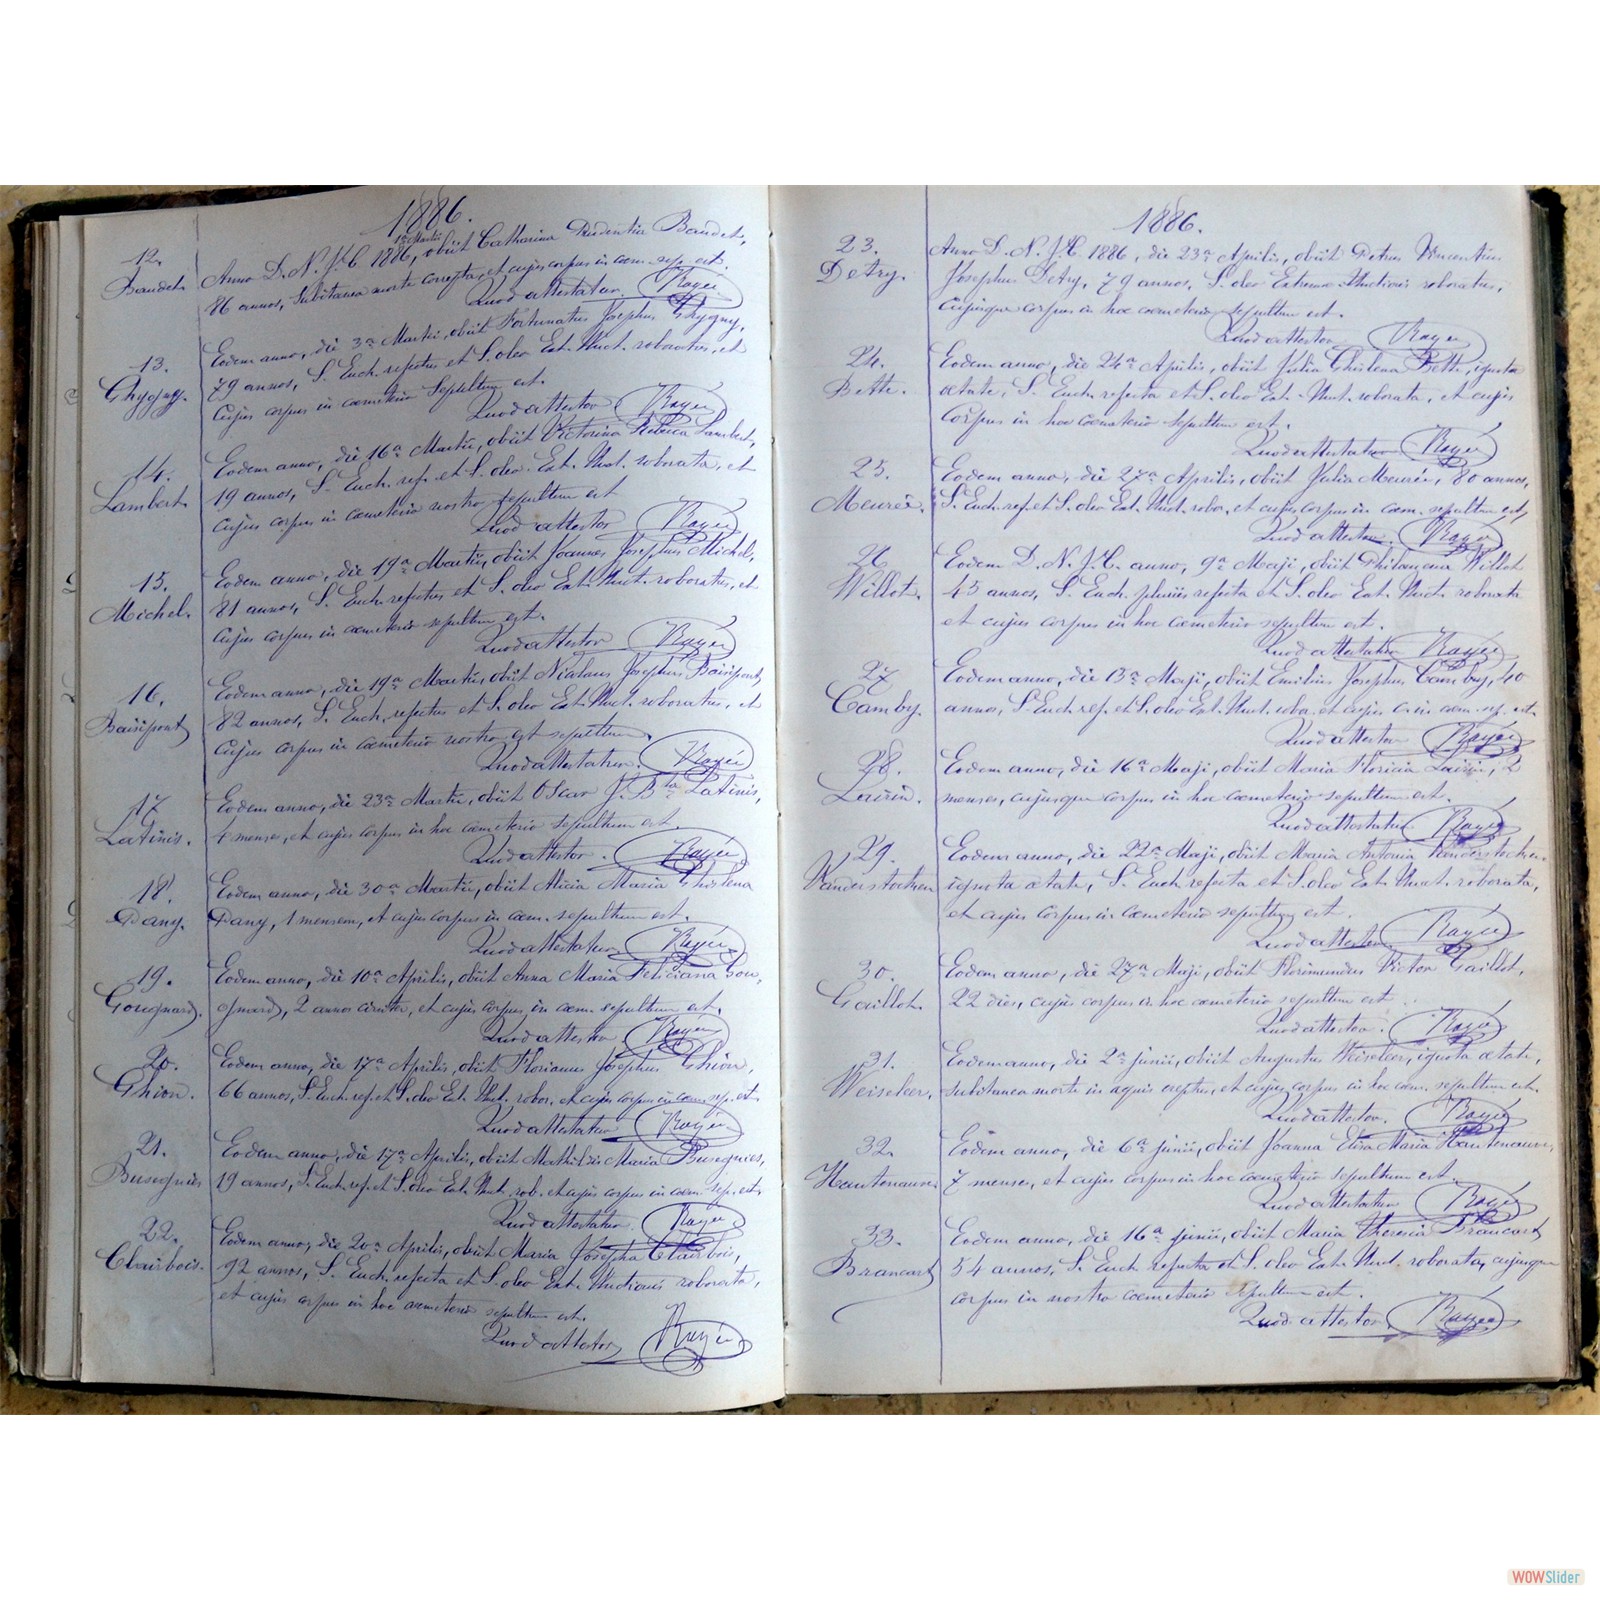 1886.
12.
Baudet.
Anno D. N. J. C. 1886, obiit Catharina Prudentia Baudet,
86 annos, subitanea morte correpta, et cujus corpus in coem. sep. est.
Quod attestatur Rayée
13.
Ghygny.
Eodem anno, die 3a Martii, obiit Fortunatus Josephus Ghygny,
79 annos, S. Euch. refectus et S. oleo Ext. Unct. roboratus, et
cujus corpus in coemeterio sepultum est.
Quod attestor Rayée
14.
Lambert.
Eodem anno, die 16a Martii, obiit Victorina Rebeca Lambert,
19 annos, S. Euch. ref. et S. oleo Ext. Unct. roborata, et
cujus corpus in coemeterio nostro sepultum est
Quod attestor Rayée
15.
Michel.
Eodem anno, die 19a Martii, obiit Joannes Josephus Michel,
81 annos, S. Euch. refectus et S. oleo Ext. Unct. roboratus, et
cujus corpus in coemeterio sepultum est.
Quod attestor Rayée
16.
Baisipont
Eodem anno, die 19a Martii, obiit Nicolaus Josephus Baisipont,
82 annos, S. Euch. refectus et S. oleo Ext. Unct. roboratus, et
cujus corpus in coemeterio nostro est sepultum.
Quod attestatur. Rayée
17
Latinis.
Eodem anno, die 23a Martii, obiit Oscar J. Bta Latinis,
4 menses, et cujus corpus in hoc coemeterio sepultum est.
Quod attestor. Rayée
18.
Dany.
Eodem anno, die 30a Martii, obiit Alicia Maria Ghislena
Dany, 1 mensem, et cujus corpus in coem. sepultum est.
Quod attestatur Rayée
19.
Gougnard.
Eodem anno, die 10a Aprilis, obiit Anna Maria Feliciana Gou,
gnard, 2 annos circiter, et cujus corpus in coem. sepultum est.
Quod attestor Rayée
20.
Ghion.
Eodem anno, die 17a Aprilis, obiit Florianus Josephus Ghion,
66 annos, S. Euch. ref. et S. oleo Ext. Unct. robor. et cujus corpus in coem. sep. est.
Quod attestatur Rayée
21.
Busegnies
Eodem anno, die 17a Aprilis, obiit Mathildis Maria Busegnies,
19 annos, S. Euch. ref. et S. oleo Ext. Unct. rob. et cujus corpus in coem. sep. est.
Quod attestatur. Rayée
22.
Clairbois.
Eodem anno, die 20a Aprilis, obiit Maria Josepha Clairbois,
92 annos, S. Euch. refecta et S. oleo Ext. Unctionis roborata,
et cujus corpus in hoc coemeterio sepultum est.
Quod attestor Rayée
1886.
23.
DeTry.
Anno D. N. J. C. 1886, die 23a Aprilis, obiit Petrus Vincentius
Josephus DeTry, 79 annos, S. oleo Extremae Unctionis roboratus,
cujusque corpus in hoc coemeterio sepultum est.
Quod attestor Rayée
24.
Bette.
Eodem anno, die 24a Aprilis, obiit Julia Ghislena Bette, ignota
aetate, S. Euch. refecta et S. oleo Ext. Unct. roborata, et cujus
corpus in hoc coemeterio sepultum est.
Quod attestatur Rayée
25.
Meurée.
Eodem anno, die 27a Aprilis, obiit Julia Meurée, 80 annos,
S. Euch. ref. et S. oleo Ext. Unct. robor. et cujus corpus in coem. sepultum est,
Quod attestor. Rayée
26
Willot.
Eodem D. N. J. C. anno, 9a Maji, obiit Philomena Willot
45 annos, S. Euch. pluries refecta et S. oleo Ext. Unct. roborata
et cujus corpus in hoc coemeterio sepultum est.
Quod attestatur Rayée
27
Camby.
Eodem anno, die 13a Maji, obiit Emilius Josephus Camby, 40
annos, S. Euch. ref. et S. oleo Ext. Unct. robor. et cujus c. in coem. sep. est.
Quod attestor Rayée
28.
Laurin.
Eodem anno, die 16a Maji, obiit Maria Floricia Laurin, 2
menses, cujusque corpus in hoc coemeterio sepultum est.
Quod attestatur Rayée
29.
Vanderstocken
Eodem anno, die 22a Maji, obiit Maria Antonia Vanderstocken
ignota aetate, S. Euch. refecta et S. oleo Ext. Unct. roborata,
et cujus corpus in coemeterio sepultum est.
Quod attestor Rayée
30.
Gaillot.
Eodem anno, die 27a Maji, obiit Florimundus Victor Gaillot,
22 dies, cujus corpus in hoc coemeterio sepultum est.
Quod attestor. Rayée
31.
Weiseler.
Eodem anno, die 2a junii, obiit Augustus Weiseler, ignota aetate,
subitanea morte in aquis ereptus, et cujus corpus in hoc coem. sepultum est.
Quod attestor. Rayée
32.
Hautenauve.
Eodem anno, die 6a junii, obiit Joanna Elisa Maria Hautenauve,
7 menses, et cujus corpus in hoc coemeterio sepultum est.
Quod attestatur Rayée
33.
Brancart
Eodem anno, die 16a junii, obiit Maria Theresia Brancart
54 annos, S. Euch. refecta et S. oleo Ext. Unct. roborata, cujusque
corpus in nostro coemeterio sepultum est.
Quod attestor Rayée
WOWSlider